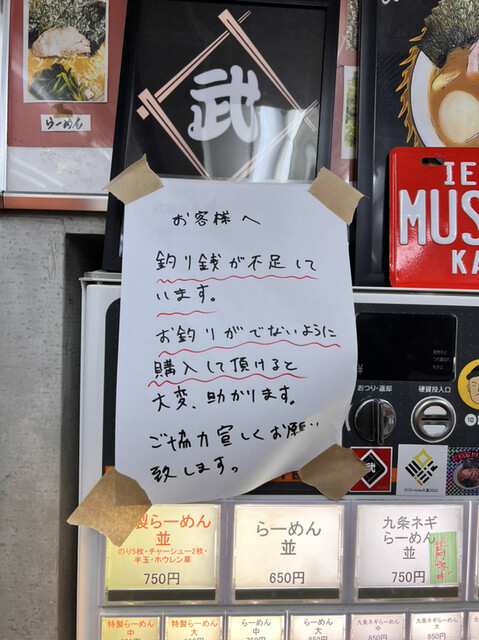 らーめん
武
IE
MUS
KA
お客様へ
釣り銭が不足して
います。
お釣りがでないように
購入して頂けると
大変、助かります。
ご協力宜しくお願い
致します。
おつり・返却
硬貨投入口
武
製らーめん
並
のり5枚・チャーシュー2枚・
半玉・ホウレン草
750円
らーめん
並
650円
九条ネギ
らーめん
並
750円
特製らーめん
中
特製らーめん
大
らーめん
中
らーめん
大
九条ネギらーめん
中
九条ネギらーめん
大